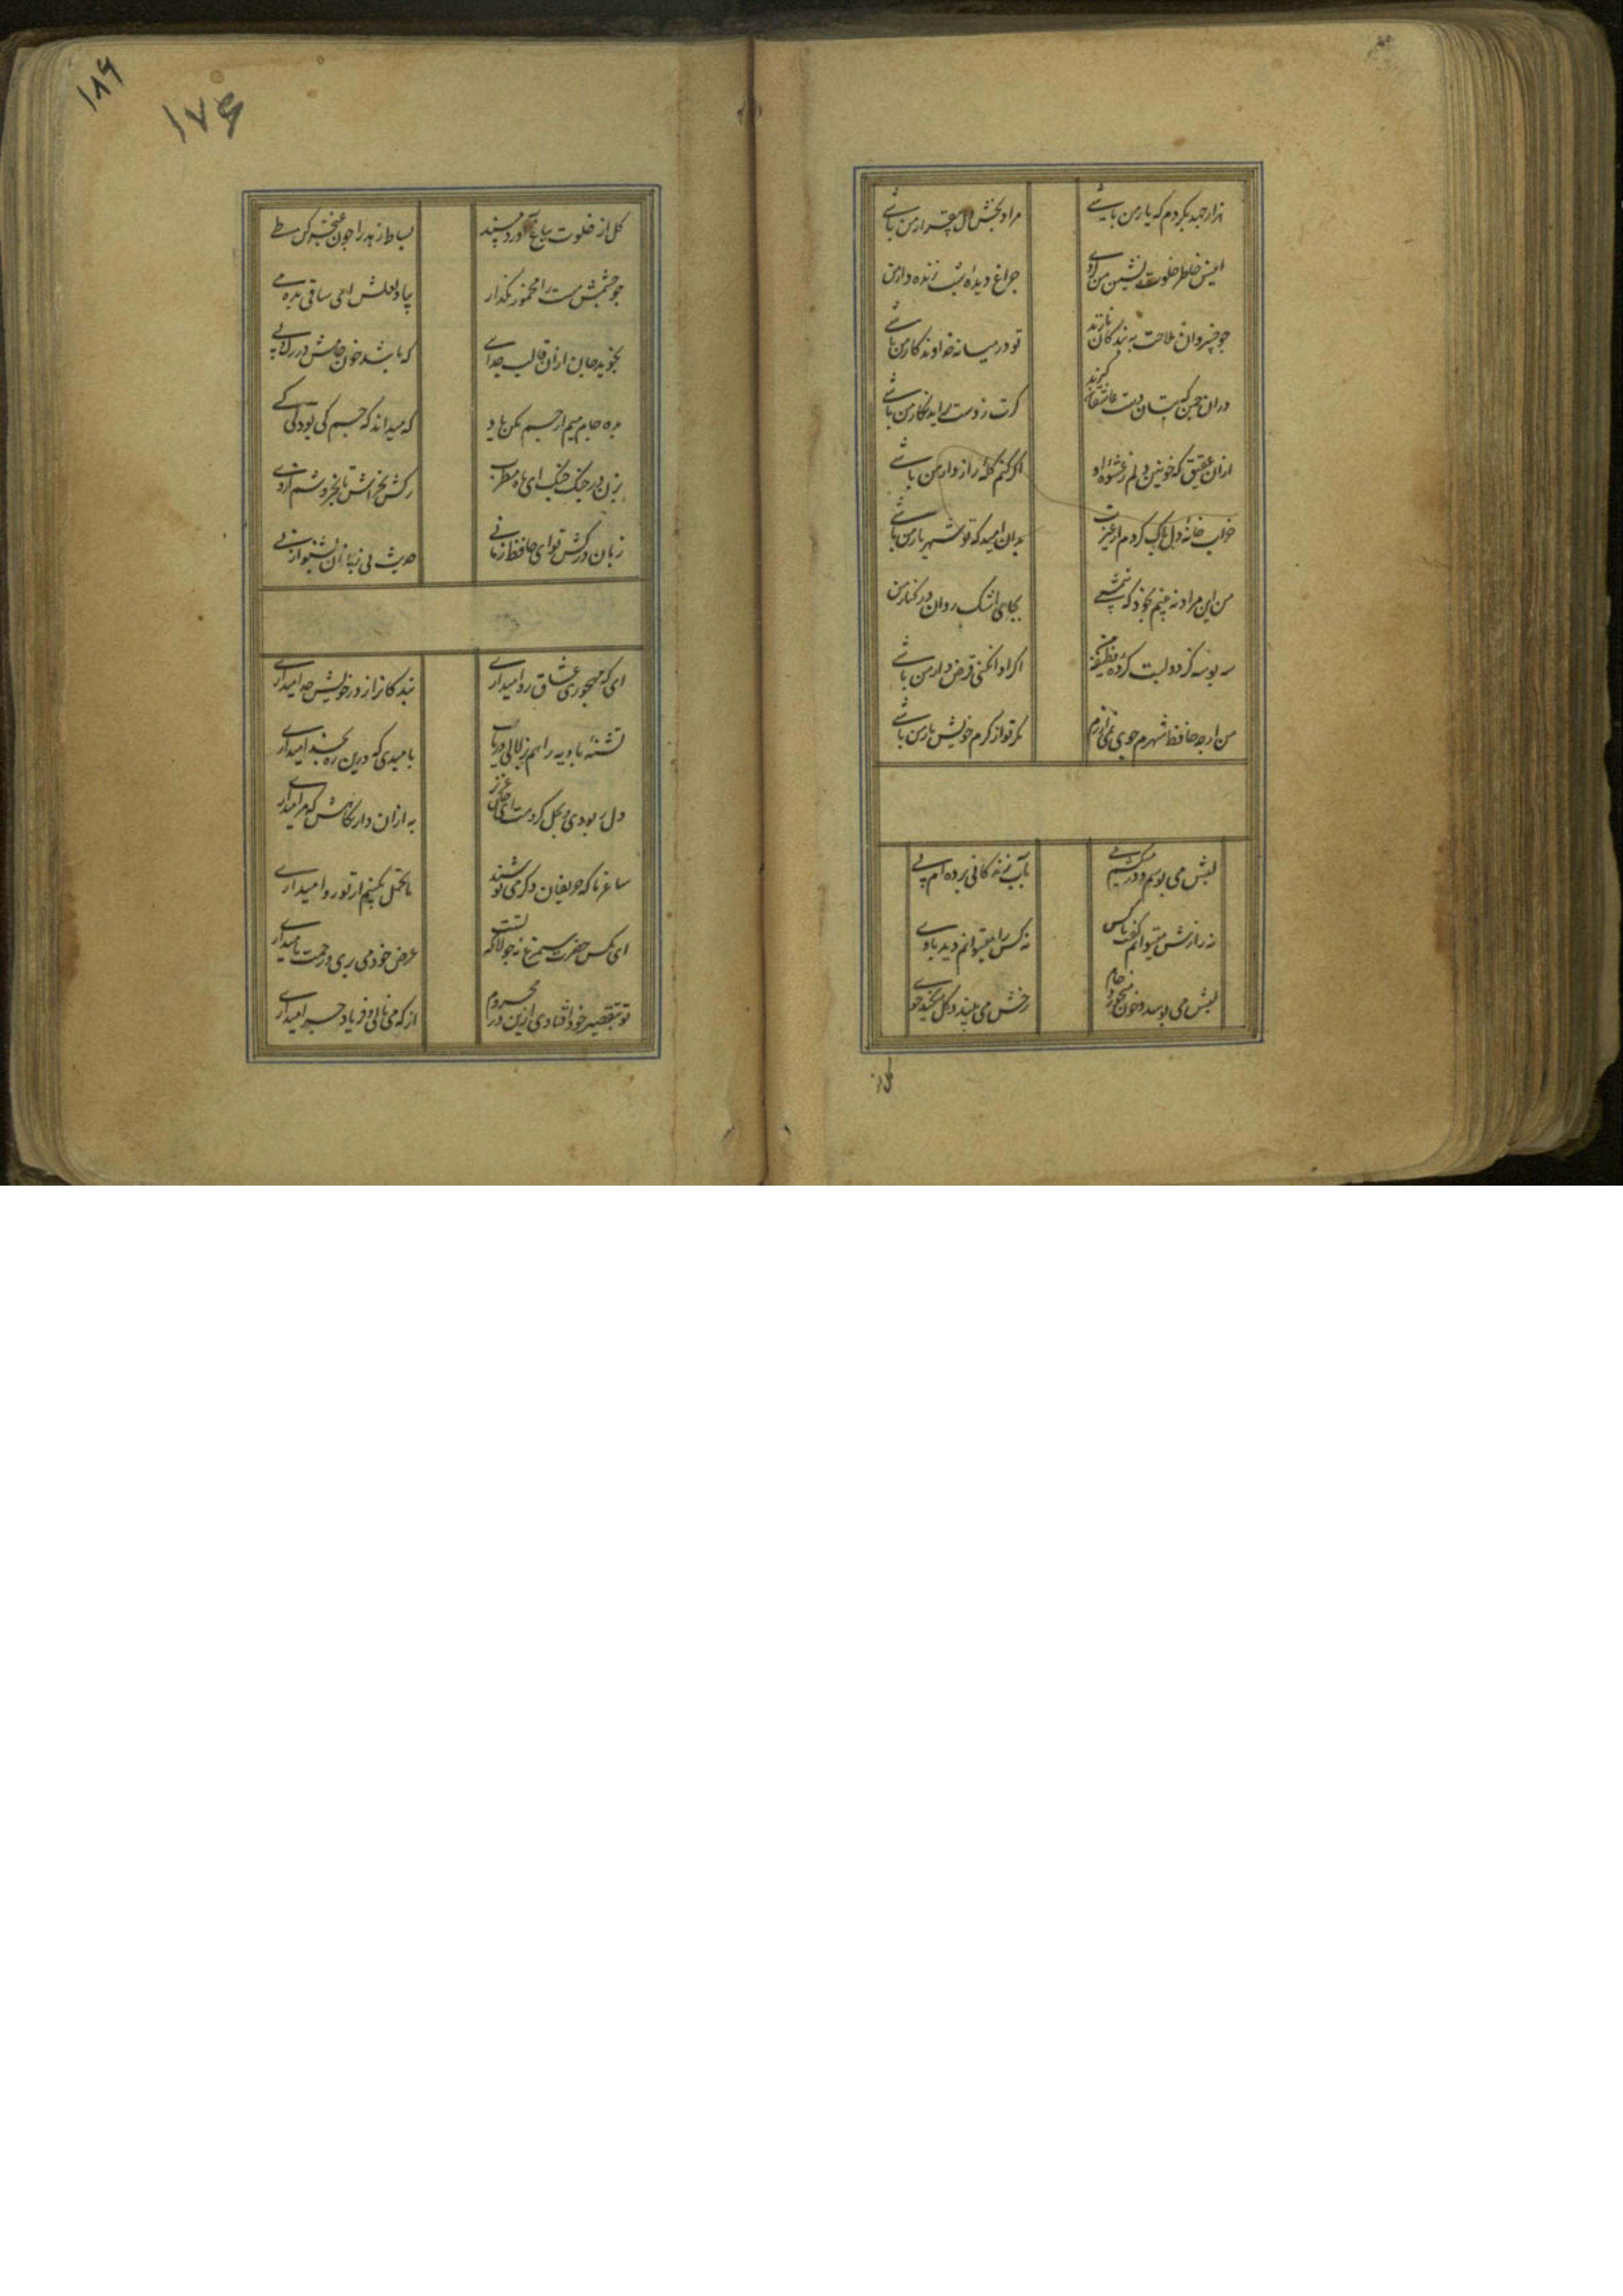 هزار جهد بکردم که یار من باشی
مراد بخش دل بیقرار من باشی
انیس خاطر خلوت نشین من کردی
چراغ دیده شب زنده دار من
جو خسروان ملاحت به بندکان نازند
تو در میانه خداوندکار من باشی
دران جمن که بتان دست عاشقان کیرند
کرت ز دست براید نکار من باشی
ازان عقیق که خونین دلم ز عشوه او
اکر کنم کلهٔ رازدار من باشی
خراب خانهٔ دل پاک کردم از غیرت
بدان امید که تو شهریار من باشی
من این مراد نه بینم بخود که نیم شبی
بجای اشک روان در کنار من
سه بوسه کز دو لبت کردهٔ وظیفه من
اکر ادا نکنی قرض دار من باشی
من ارجه حافظ شهرم جوی نمی ارزم
مکر تو از کرم خویش یار من باشی
لبش می بوسم و در میکشم می
بآب زندکانی برده ام پی
نه رازش میتوانم کفت با کس
نه کس را میتوانم دید با وی
لبش می بوسد و خون میخورد جام
رخش می بیند و کل میکند خوی
کل از
۱۸۶
۱۷۶
کل از خلوت بباغ آورد مسند
بساط زهد را جون غنچه کن طی
جو جشمش مست را مخمور مکذار
بیاد لعلش ای ساقی بده می
نجوید جان ازان قالب جدایی
که باشد خون جامش در رک و پی
بده جام می از جم مکن یاد
که میداند که جم کی بود کی کی
بزن در جنک جنک ای ماه مطرب
رکش بخراش تا بخروشم از وی
زبان درکش تو ای حافظ زمانی
حدیث بی زبانان بشنو از نی
ای که مهجوری عشاق روا میداری
بندکان را ز در خویش جدا میداری
تشنهٔ بادیه را هم بزلالی دریاب
بامیدی که درین ره بخدا میداری
دل ربودی و بحل کردمت ای جان عزیز
به ازان دار نکاهش که مرا میداری
ساغر ما که حریفان دکر می نوشند
ما تحمل بکنیم ار تو روا میداری
ای مکس حضرت سیمرغ نه جولانکه تست
عرض خود می بری و زحمت ما میداری
تو بتقصیر خود افتادی ازین در محروم
از که می نالی و فریاد جرا میداری